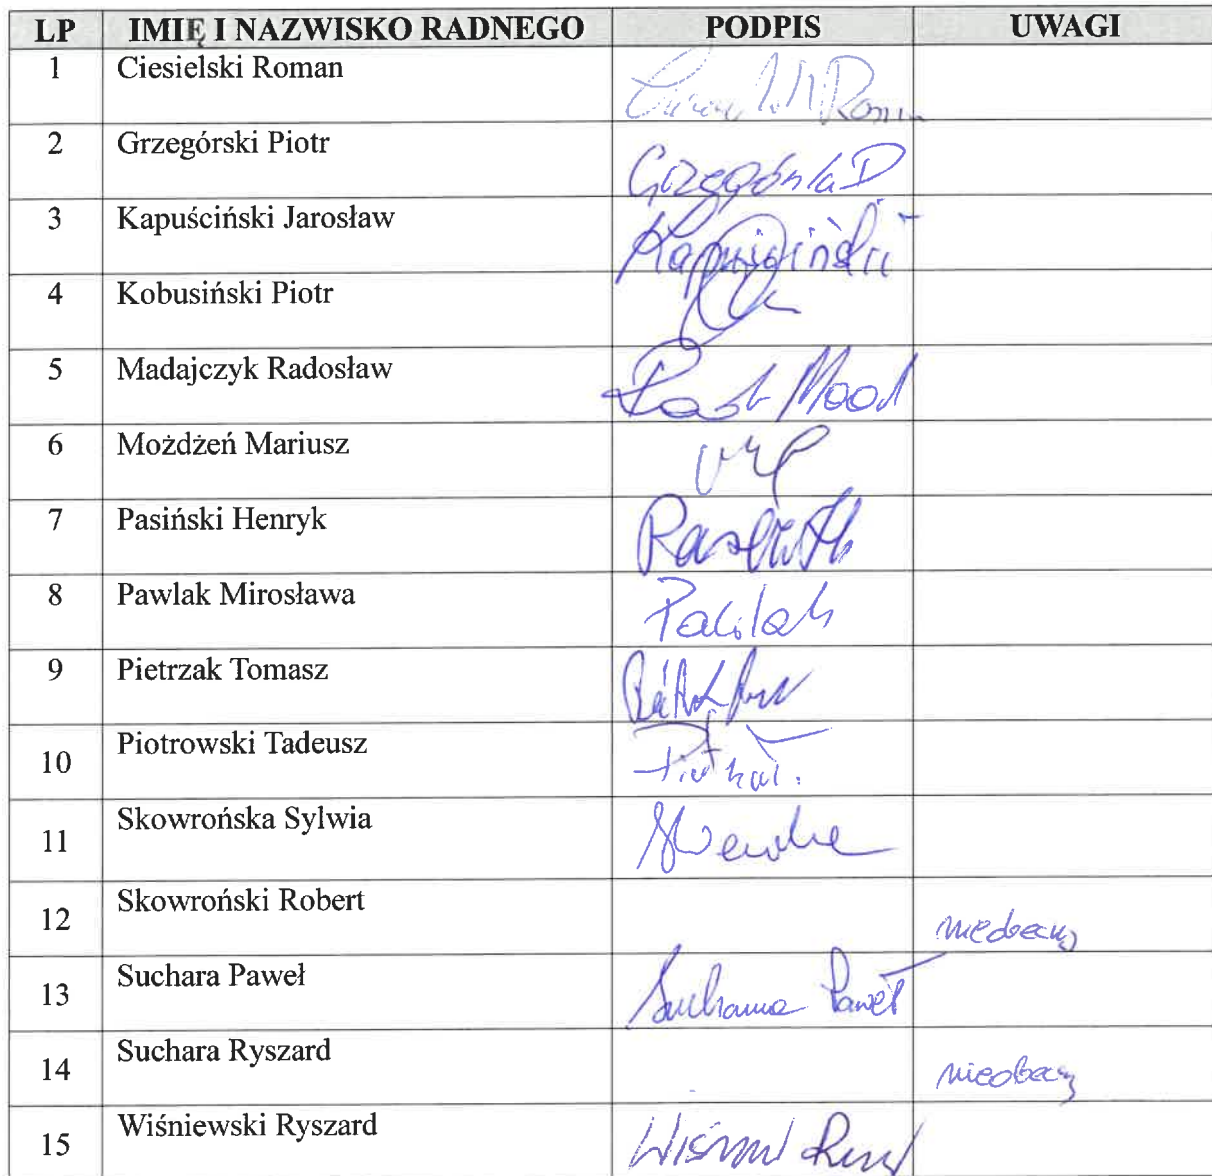 LP IMIĘ I NAZWISKO RADNEGO PODPIS UWAGI
1 Ciesielski Roman
2 Grzegórski Piotr
3 Kapuściński Jarosław Kapuściński
4 Kobusiński Piotr
5 Madajczyk Radosław
6 Możdżeń Mariusz
7 Pasiński Henryk
8 Pawlak Mirosława Pawlak
9 Pietrzak Tomasz
10 Piotrowski Tadeusz
11 Skowrońska Sylwia
12 Skowroński Robert nieobecny
13 Suchara Paweł Suchara Paweł
14 Suchara Ryszard nieobecny
15 Wiśniewski Ryszard